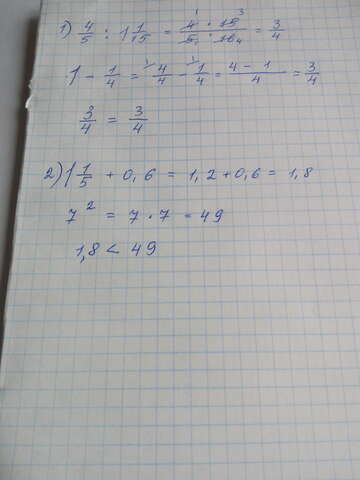 1) 4/5 : 1 1/15 = 4 · 15 / 5 · 16 = 3/4
1 - 1/4 = 4/4 - 1/4 = 4 - 1 / 4 = 3/4
3/4 = 3/4
2) 1 1/5 + 0,6 = 1,2 + 0,6 = 1,8
7² = 7 · 7 = 49
1,8 < 49